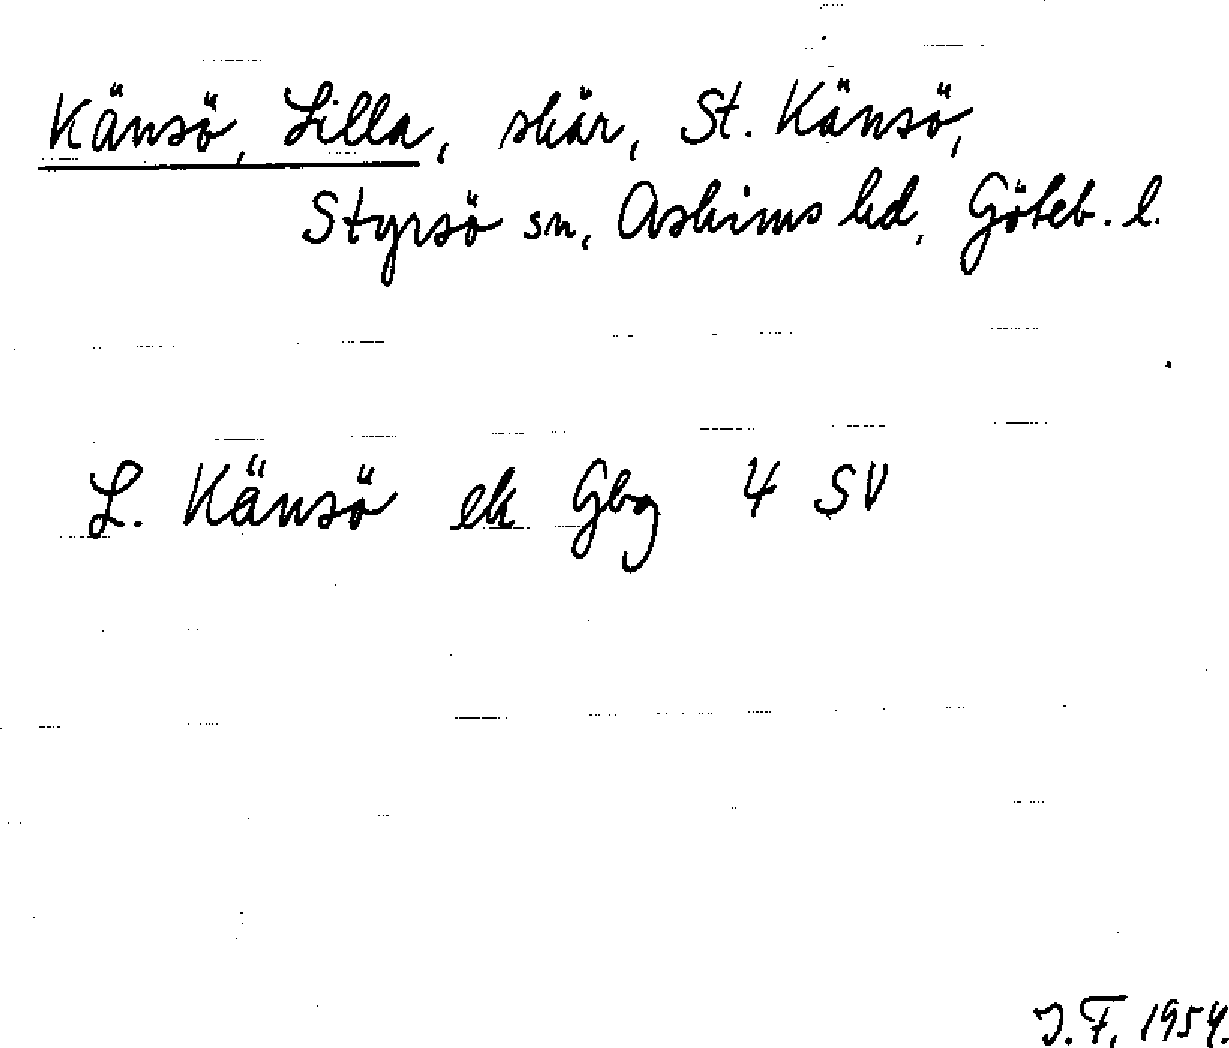 Känsö, Lilla, skär, St. Känsö,
Styrsö sn, Askims hd, Göteb. l.
L. Känsö ek Gbg 4 SV
J. F. 1954.